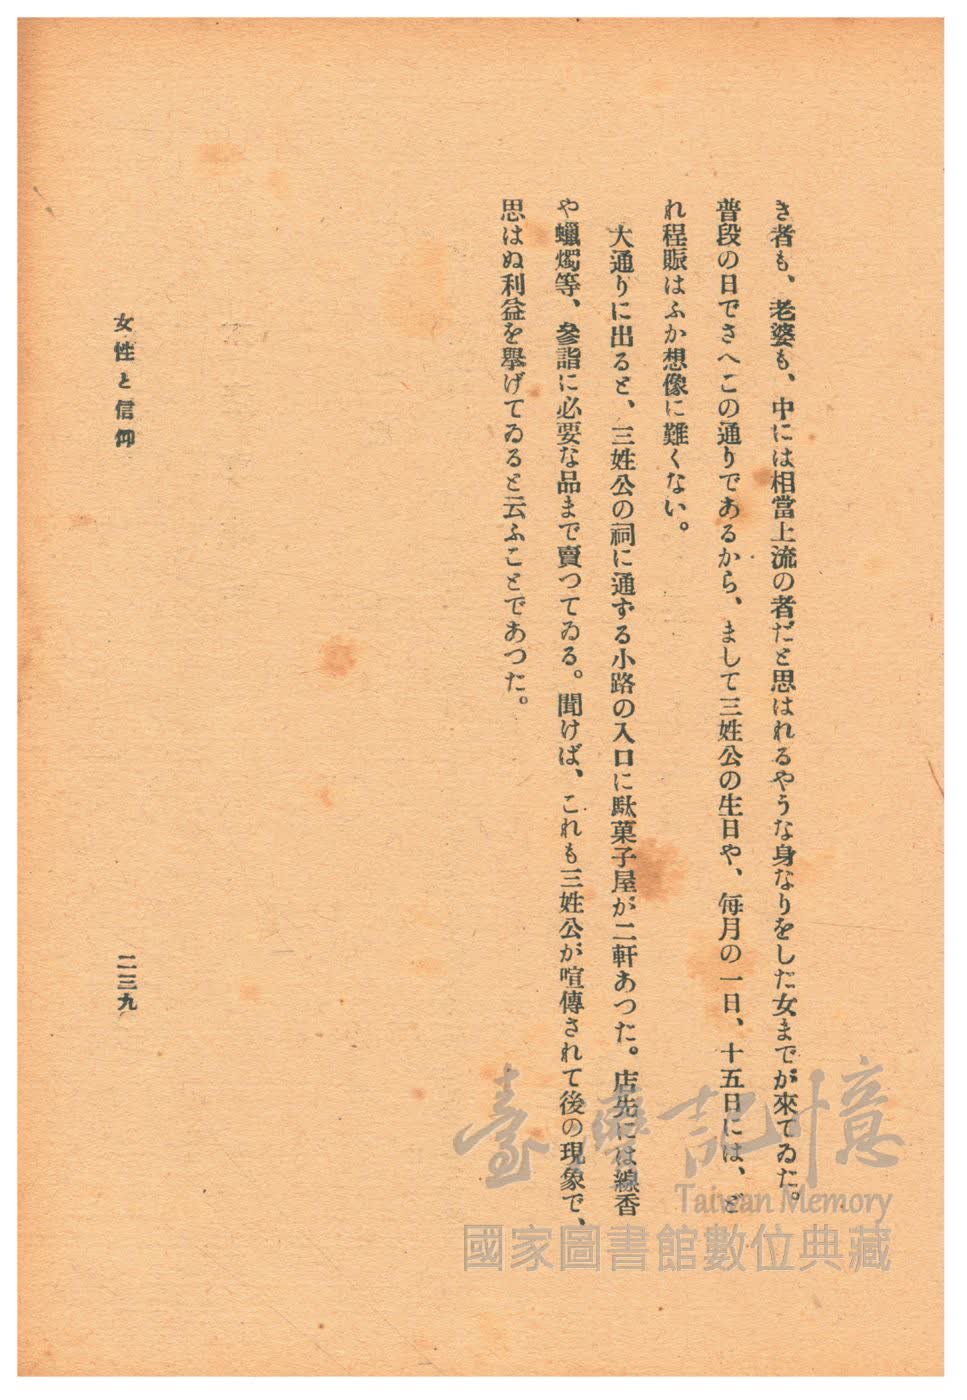 き者も、老婆も、中には相當上流の者だと思はれるやうな身なりをした女までが來てゐた。
普段の日でさへこの通りであるから、まして三姓公の生日や、每月の一日、十五日には、ど
れ程賑はふか想像に難くない。
大通りに出ると、三姓公の祠に通ずる小路の入口に駄菓子屋が二軒あつた。店先には線香
や蠟燭等、參詣に必要な品まで賣つてゐる。聞けば、これも三姓公が喧傳されて後の現象で、
思はぬ利益を擧げてゐると云ふことであつた。
女性と信仰
二三九
臺灣記憶
Taiwan Memory
國家圖書館數位典藏